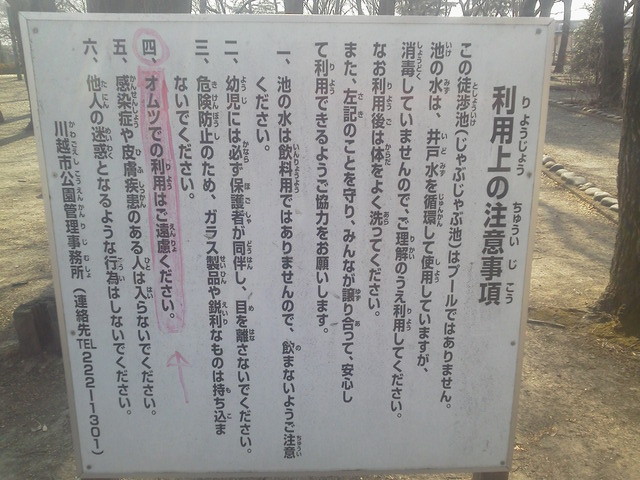 利用上の注意事項
この徒渉池(じゃぶじゃぶ池)はプールではありません。
池の水は、井戸水を循環して使用していますが、
消毒していませんので、ご理解のうえ利用してください。
なお利用後は体をよく洗ってください。
また、左記のことを守り、みんなが譲り合って、安心し
て利用できるようご協力をお願いします。
一、池の水は飲料用ではありませんので、飲まないようご注意
ください。
二、幼児には必ず保護者が同伴し、目を離さないでください。
三、危険防止のため、ガラス製品や鋭利なものは持ち込ま
ないでください。
四、オムツでの利用はご遠慮ください。
五、感染症や皮膚疾患のある人は入らないでください。
六、他人の迷惑となるような行為はしないでください。
川越市公園管理事務所(連絡先TEL222ー1301)